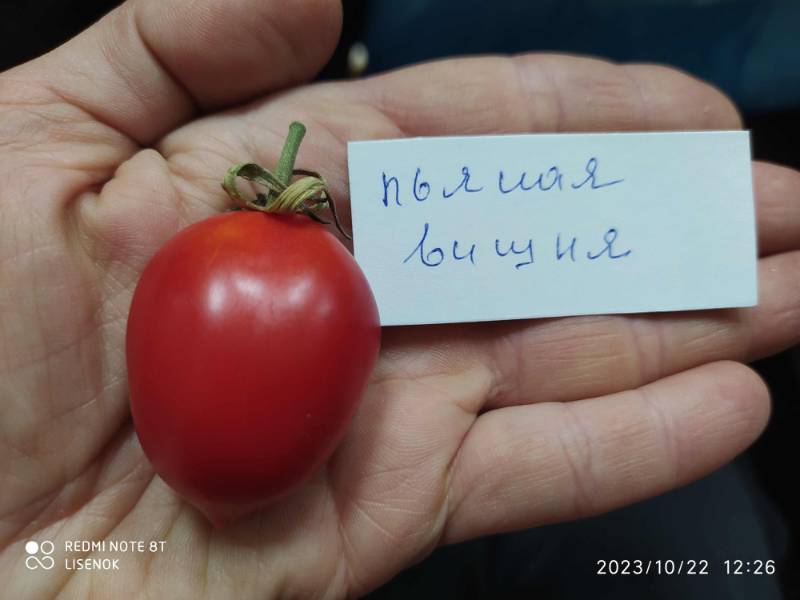 пьяная
вишня
REDMI NOTE 8T
LISENOK
2023/10/22 12:26